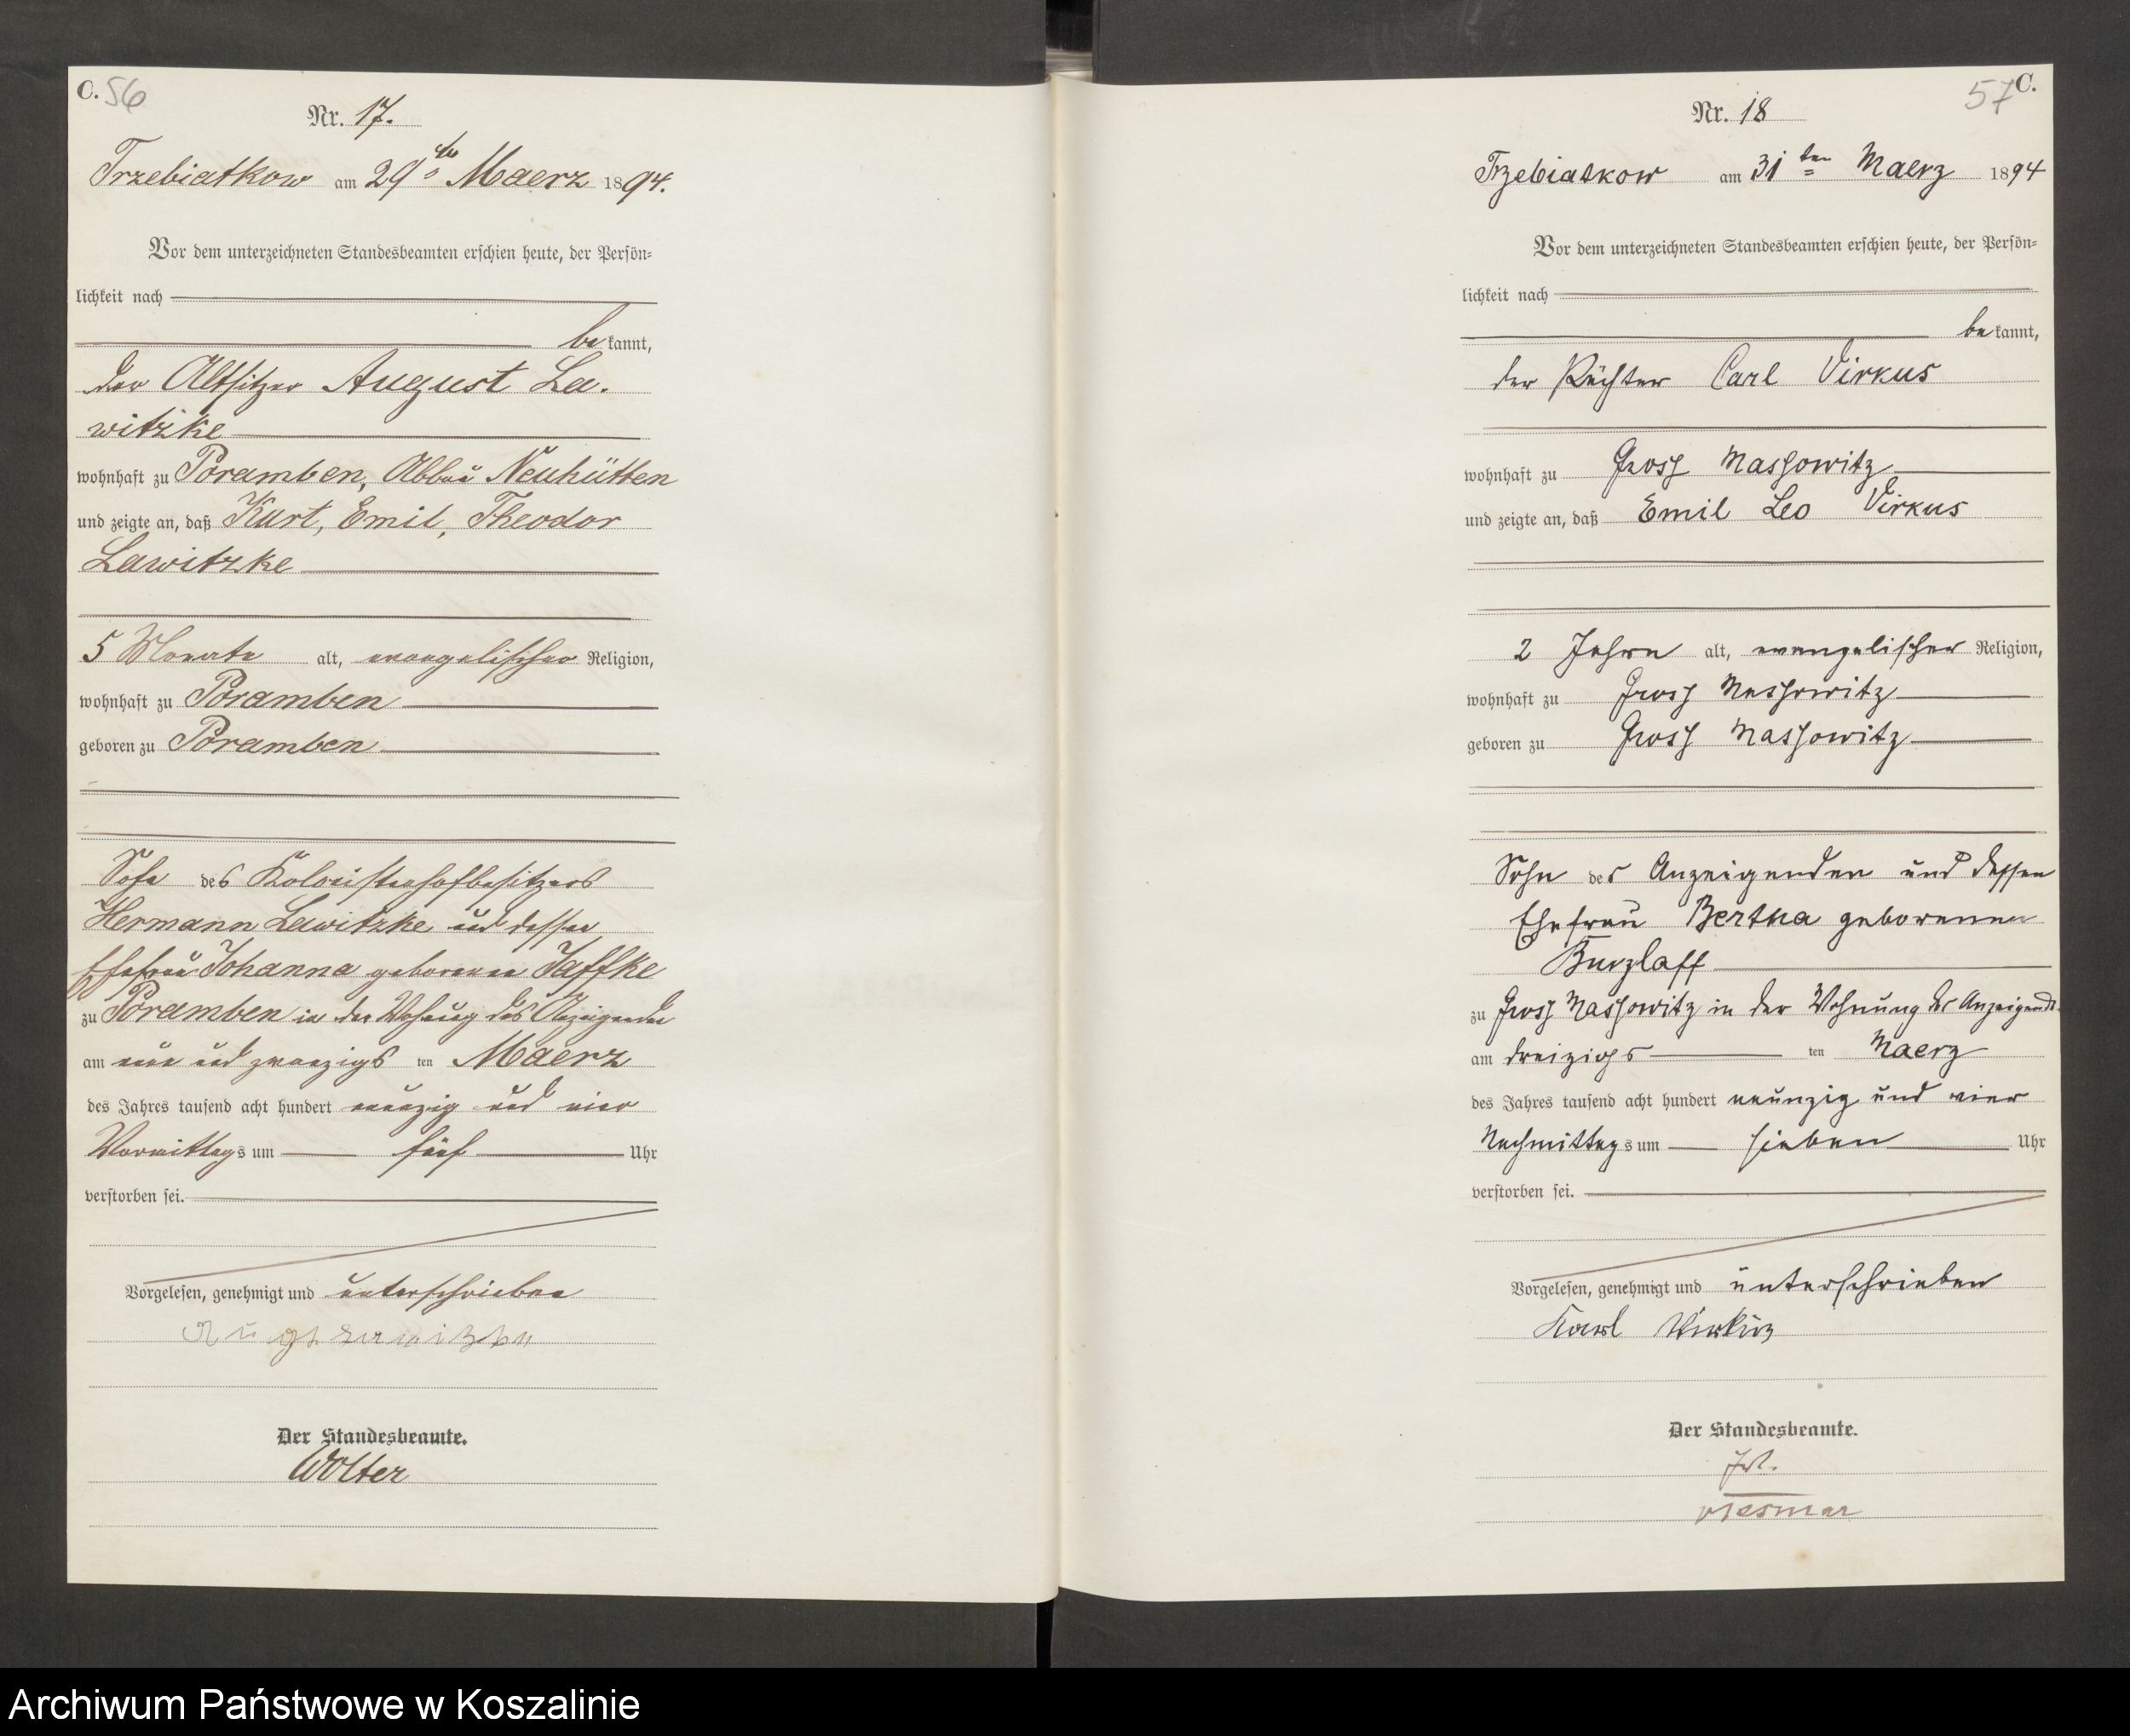 C. 56
Nr. 17.
Trzebiatkow am 29ten Maerz 1894.
Vor dem unterzeichneten Standesbeamten erschien heute, der Persön-
lichkeit nach
bekannt,
der Altsitzer August La-
witzke
wohnhaft zu Poramben, Abbau Neuhütten
und zeigte an, daß Kurt, Emil, Theodor
Lawitzke
5 Monate alt, evangelischer Religion,
wohnhaft zu Poramben
geboren zu Poramben
Sohn des Kolonistenhofbesitzers
Hermann Lawitzke und dessen
Ehefrau Johanna geborenen Jaffke
zu Poramben in der Wohnung des Anzeigenden
am neun und zwanzigsten Maerz
des Jahres tausend acht hundert neunzig und vier
Vormittags um fünf Uhr
verstorben sei.
Vorgelesen, genehmigt und unterschrieben
August Lawitzke
Der Standesbeamte.
Wolter
57 C.
Nr. 18
Trzebiatkow am 31ten Maerz 1894
Vor dem unterzeichneten Standesbeamten erschien heute, der Persön-
lichkeit nach
bekannt,
der Pächter Carl Virkus
wohnhaft zu Gross Massowitz
und zeigte an, daß Emil Leo Virkus
2 Jahre alt, evangelischer Religion,
wohnhaft zu Gross Massowitz
geboren zu Gross Massowitz
Sohn des Anzeigenden und dessen
Ehefrau Bertha geborenen
Kurzlaff
zu Gross Massowitz in der Wohnung des Anzeigend.
am dreizigsten Maerz
des Jahres tausend acht hundert neunzig und vier
Nachmittags um sieben Uhr
verstorben sei.
Vorgelesen, genehmigt und unterschrieben
Karl Virkus
Der Standesbeamte.
Archiwum Państwowe w Koszalinie